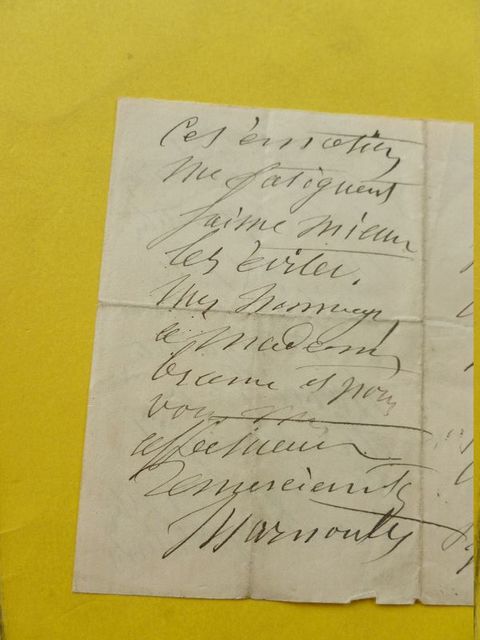 Ces émotions
me fatiguent
j'aime mieux
les éviter.
Mes hommages
à Madame
et pour
vous mes
affectueux
remerciements